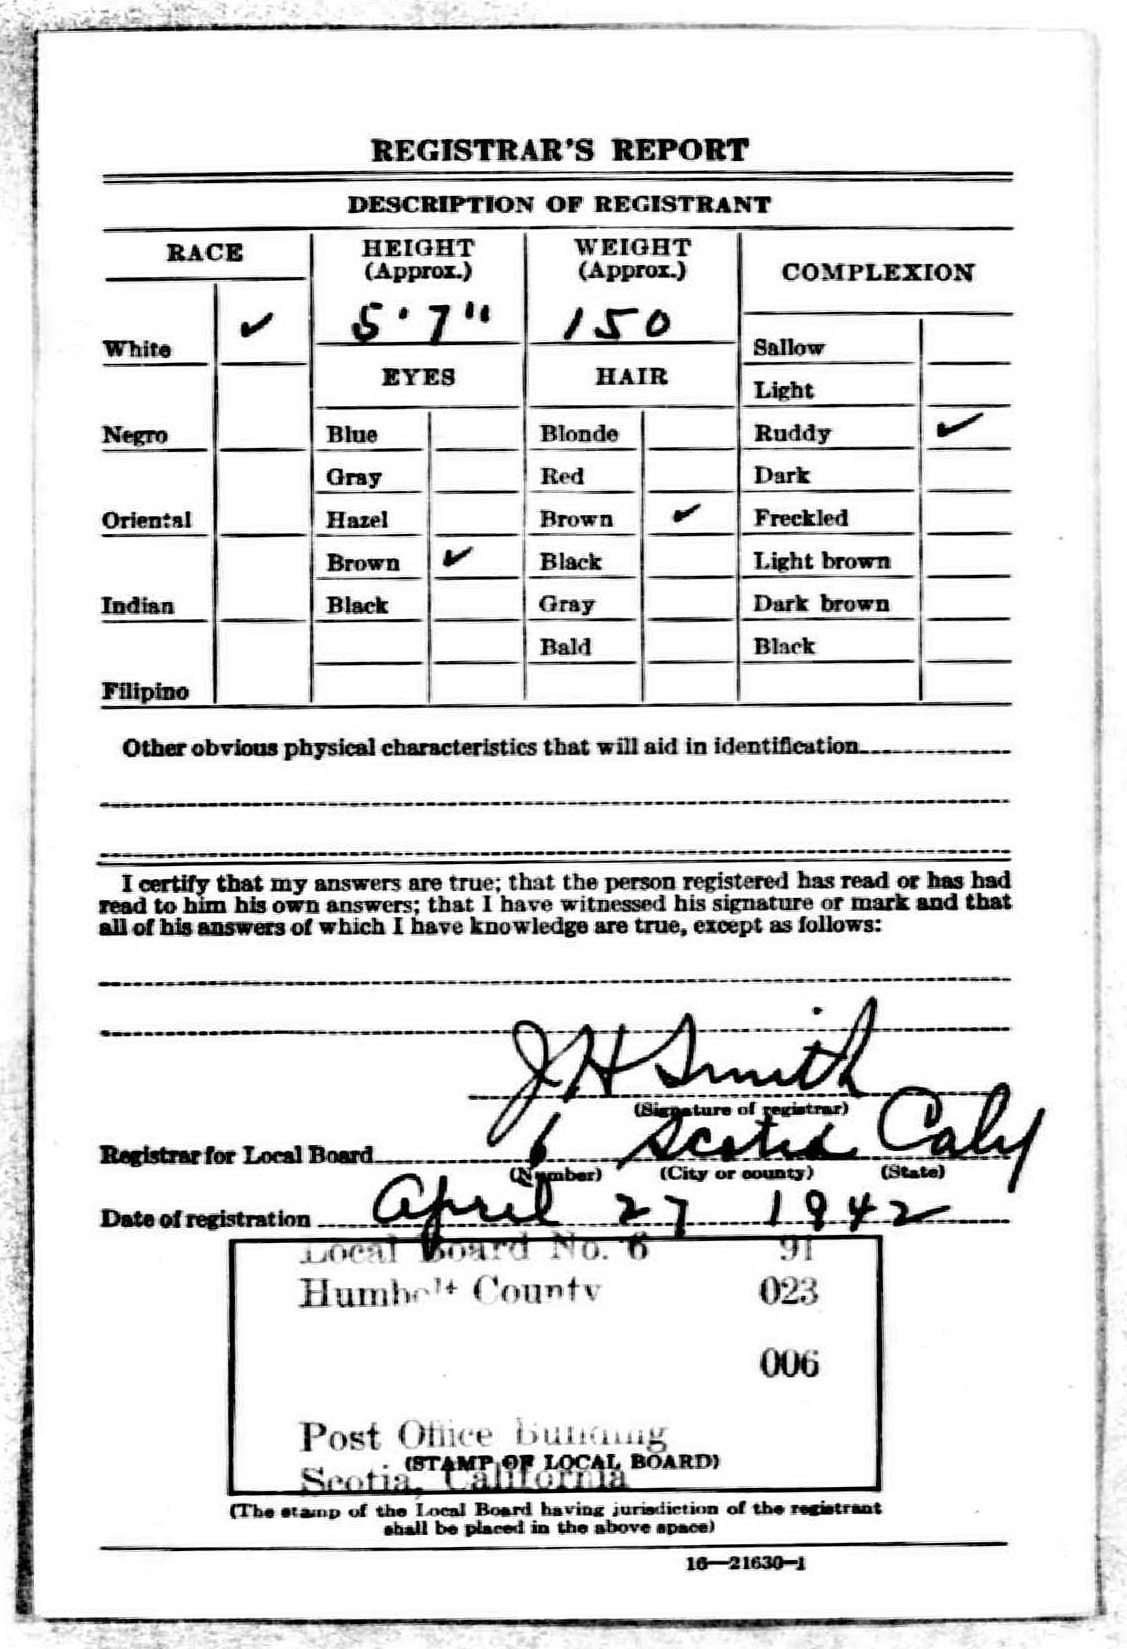 REGISTRAR'S REPORT
DESCRIPTION OF REGISTRANT
RACE
HEIGHT
(Approx.)
WEIGHT
(Approx.)
COMPLEXION
White ✓
5' 7"
150
EYES
HAIR
Sallow
Light
Negro
Blue
Blonde
Ruddy ✓
Gray
Red
Dark
Oriental
Hazel
Brown ✓
Freckled
Brown ✓
Black
Light brown
Indian
Black
Gray
Dark brown
Bald
Black
Filipino
Other obvious physical characteristics that will aid in identification
I certify that my answers are true; that the person registered has read or has had
read to him his own answers; that I have witnessed his signature or mark and that
all of his answers of which I have knowledge are true, except as follows:
J H Smith
(Signature of registrar)
Registrar for Local Board 6 Scotia Calif
(Number) (City or county) (State)
Date of registration April 27 1942
Local Board No. 6 91
Humbolt County 023
006
Post Office Building
(STAMP OF LOCAL BOARD)
Scotia, California
(The stamp of the Local Board having jurisdiction of the registrant
shall be placed in the above space)
16—21630-1